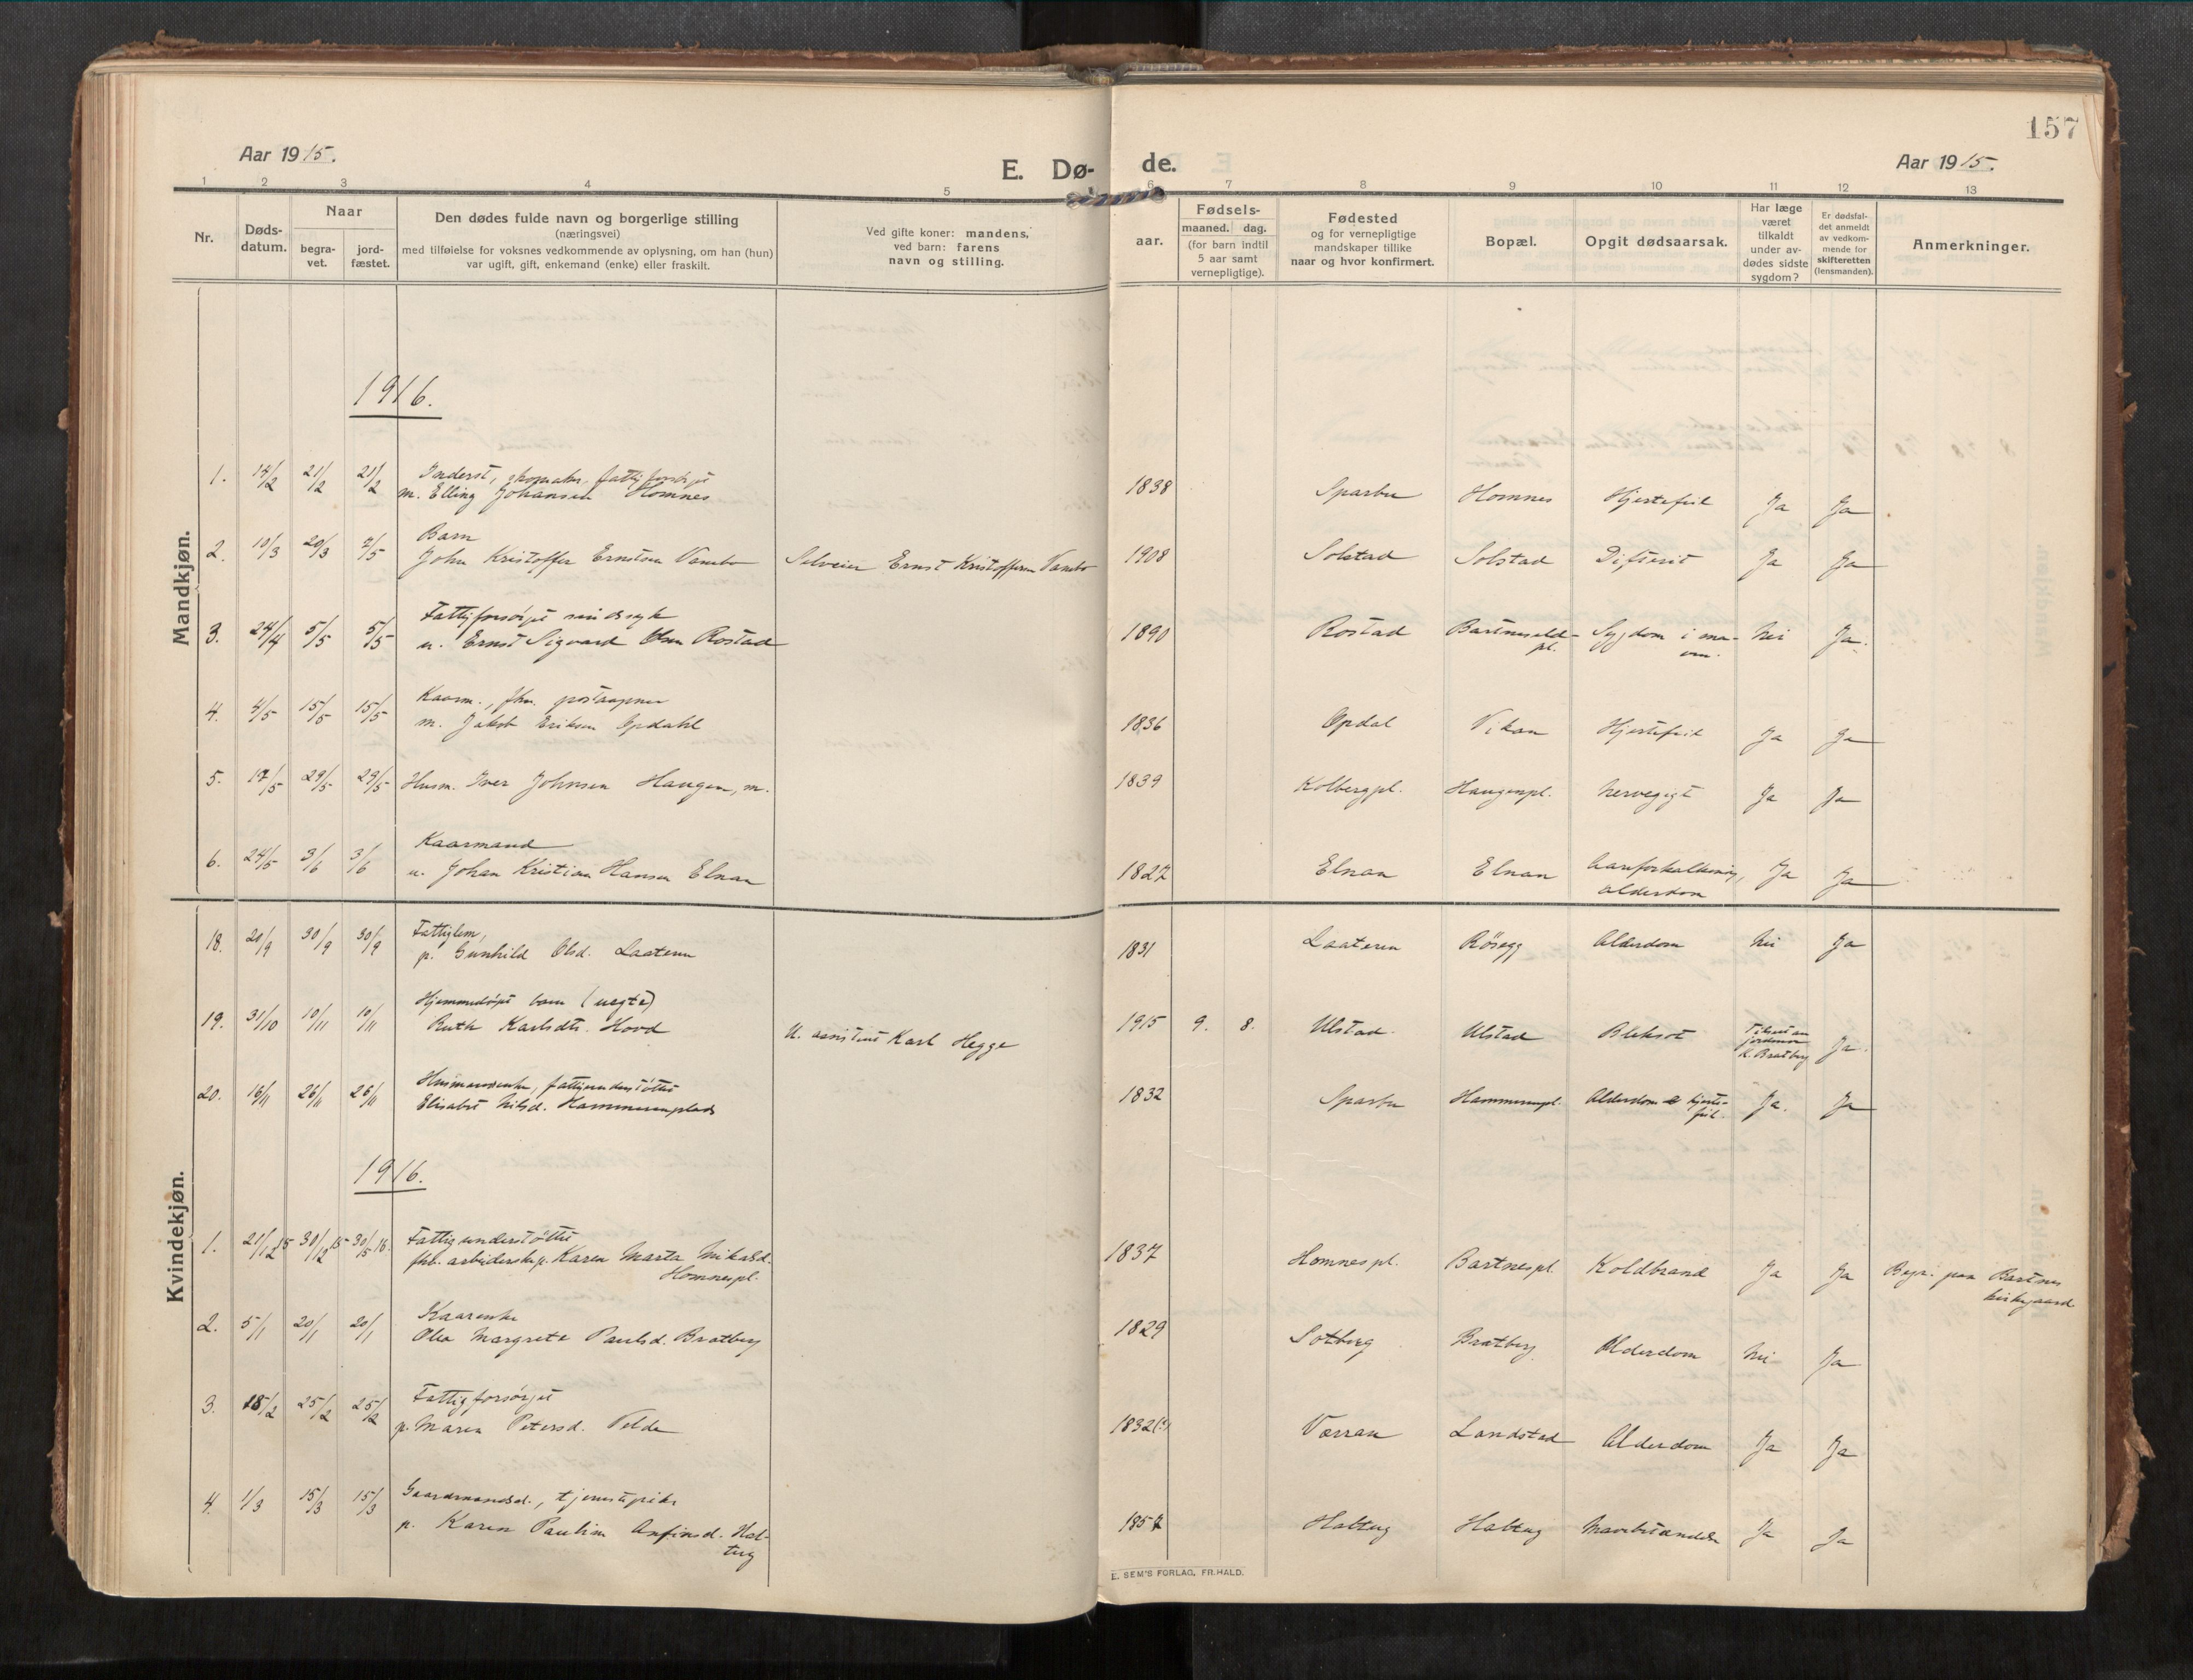 157
Aar 1915.
E. Dø- de.
Aar 1915.
1 2 3 4 5 6 7 8 9 10 11 12 13
Nr.
Døds-
datum.
Naar
begra-
vet.
jord-
fæstet.
Den dødes fulde navn og borgerlige stilling
(næringsvei)
med tilføielse for voksnes vedkommende av oplysning, om han (hun)
var ugift, gift, enkemand (enke) eller fraskilt.
Ved gifte koner: mandens,
ved barn: farens
navn og stilling.
aar.
Fødsels-
maaned. dag.
(for barn indtil
5 aar samt
vernepligtige).
Fødested
og for vernepligtige
mandskaper tillike
naar og hvor konfirmert.
Bopæl.
Opgit dødsaarsak.
Har læge
været
tilkaldt
under av-
dødes sidste
sygdom?
Er dødsfal-
det anmeldt
av vedkom-
mende for
skifteretten
(lensmanden).
Anmerkninger.
Mandkjøn.
1916.
Inderst, fattigforsörget
1. 14/2 21/2 21/2 m. Elling Johansen Homnes 1838 Sparbu Homnes Hjertefeil Ja Ja
Barn
2. 10/3 20/3 7/5 John Kristoffer Ernstsen Vambo Selveier Ernst Kristoffersen Vambo 1908 Solstad Solstad Difterit Ja Ja
Fattigforsörget sindssyk
3. 24/4 5/5 5/5 u. Ernst Sigvard Olsen Rostad 1890 Rostad Bartnes Sygdom i ma- Nei Ja.
ven.
Kaarm., fhv. postaapner
4. 4/5 15/5 15/5 m. Jakob Eriksen Opdahl 1836 Opdal Vikan Hjertefeil Ja Ja
5. 17/5 29/5 29/5 Husm. Iver Johnsen Haugen, m. 1839 Kolbergpl. Haugenpl. Nervegigt Ja Ja
Kaarmand
6. 24/5 3/6 3/6 u. Johan Kristian Hansen Elnan 1827 Elnan Elnan Aareforkalkning, Ja Ja
alderdom
Kvindekjøn.
Fattiglem,
18. 20/9 30/9 30/9 p. Gunhild Olsd. Laateren 1831 Laateren Rösegg Alderdom Nei Ja
Hjemmedöpt barn (uegte)
19. 31/10 10/11 10/11 Ruth Karlsdtr. Hovd U. assistent Karl Hegge 1915 9. 8. Ulstad Ulstad Bleksot Tilset av
jordmor
K. Bratberg Ja.
Husmandsenke, fattigunderstöttet
20. 16/11 26/11 26/11 Elisabet Nilsd. Hammerenplads 1832 Sparbu Hammerenpl. Alderdom & hjerte- Ja. Ja
feil.
1916.
Fattigunderstöttet
1. 21/12 15 30/12 15 30/5 16. fhv. arbeiderske p. Karen Marta Mikalsd. 1837 Homnespl. Bartnespl. Koldbrand Ja Ja Begr. paa Bartnes
Homnespl. kirkegaard
Kaarenke
2. 5/1 20/1 20/1 Olea Margrete Paulsd. Bratberg 1829 Solberg Bratberg Alderdom Nei Ja
Fattigforsörget
3. 18/2 25/2 25/2 p. Maren Petersd. Velde 1832(?) Værran Landstad Alderdom Ja Ja
Gaardmandsd., tjenestepike
4. 1/3 15/3 15/3 p. Karen Pauline Anfinsd. Hal- 1857 Haltug Haltug Mavebetændelse Ja Ja
tug
E. SEM'S FORLAG, FR.HALD.